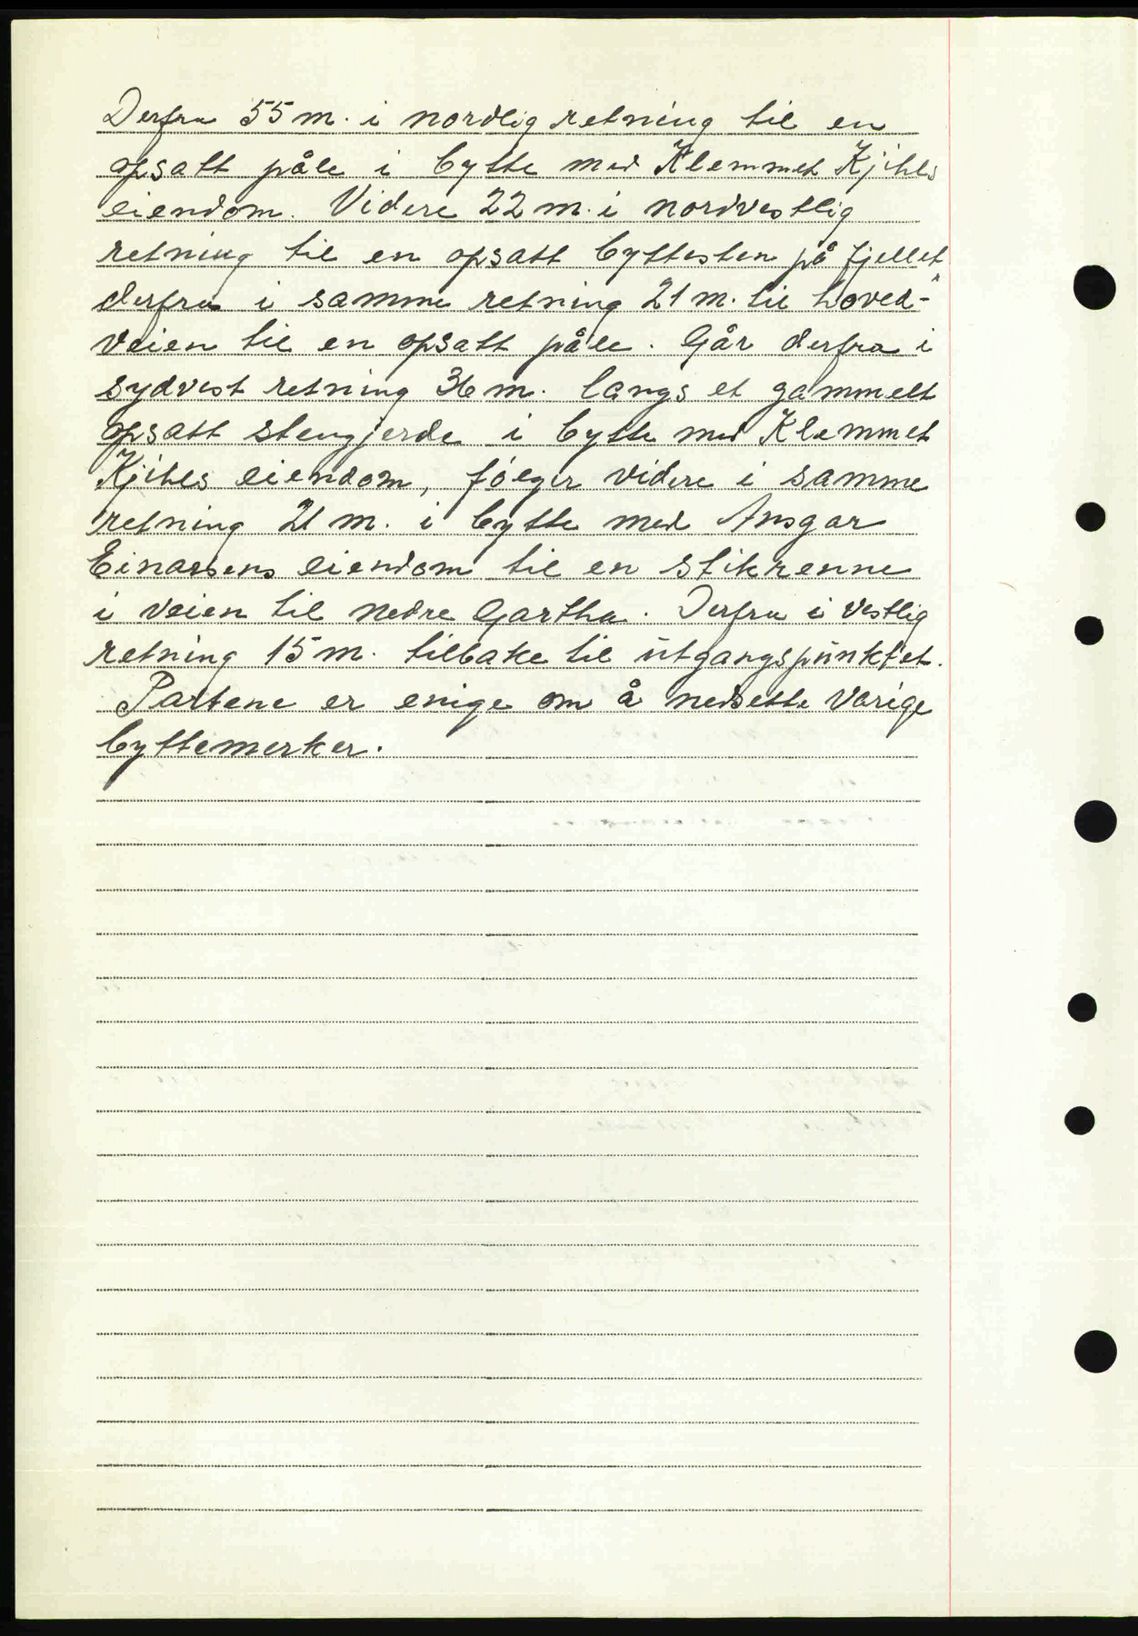 Derfra 55 m. i nordlig retning til en
opsatt påle i bytte med Klemmet Kjihls
eiendom. Videre 22 m. i nordvestlig
retning til en opsatt byttesten på fjellet,
derfra i samme retning 21 m. til hoved-
veien til en opsatt påle. Går derfra i
sydvest retning 36 m. langs et gammelt
opsatt stengjerde i bytte med Klemmet
Kjihls eiendom, følger videre i samme
retning 21 m. i bytte med Ansgar
Einarsens eiendom til en stikrenne
i veien til nedre Gartha. Derfra i vestlig
retning 15 m. tilbake til utgangspunktet.
Partene er enige om å nedsette varige
byttemerker.